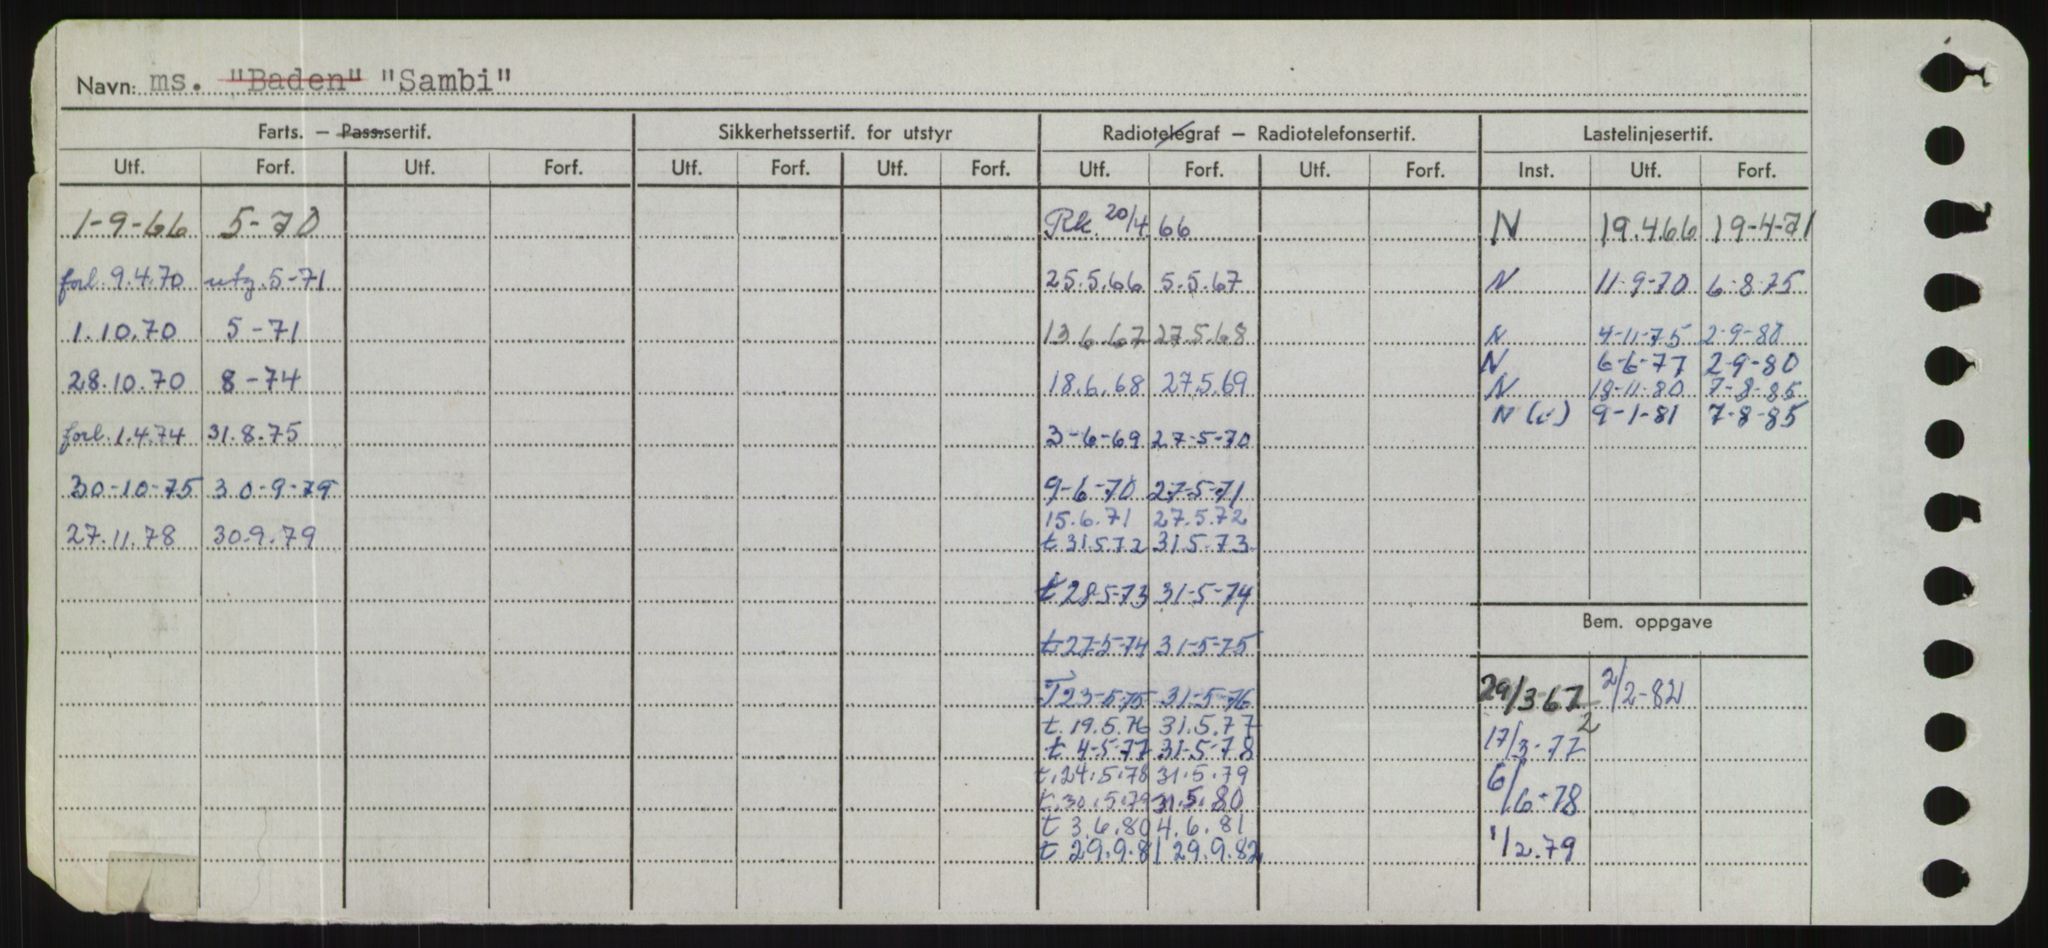 Navn: ms. "Baden" "Sambi"
Farts. – Passsertif. Sikkerhetssertif. for utstyr Radiotelegraf – Radiotelefonsertif. Lastelinjesertif.
Utf. Forf. Utf. Forf. Utf. Forf. Utf. Forf. Utf. Forf. Utf. Forf. Inst. Utf. Forf.
1-9-66 5-70 Rk. 20/4 66 N 19.4.66 19-4-71
forl. 9.4.70 utg. 5-71 25.5.66 5.5.67 N 11-9-70 6-8-75
1.10.70 5-71 13.6.67 27.5.68 N 4-11-75 2-9-80
N 6-6-77 2-9-80
28.10.70 8-74 18.6.68 27.5.69 N 18-11-80 7-8-85
N (c) 9-1-81 7-8-85
forl. 1.4.74 31.8.75 3-6-69 27-5-70
30-10-75 30-9-79 9-6-70 27-5-71
15.6.71 27.5.72
27.11.78 30.9.79 t 31.5.72 31.5-73
t 28-5-73 31-5-74
Bem. oppgave
t 27-5-74 31-5-75
T 23-5-75 31-5-76 29/3-67 2/2-82
t. 19.5.76 31.5.77
t 4-5-77 31-5-78 17/3-77
t. 24.5.78 31.5.79
t. 30.5.79 31.5.80 6/6-78
t 3.6.80 4.6.81
t 29.9.81 29.9.82 1/2.79